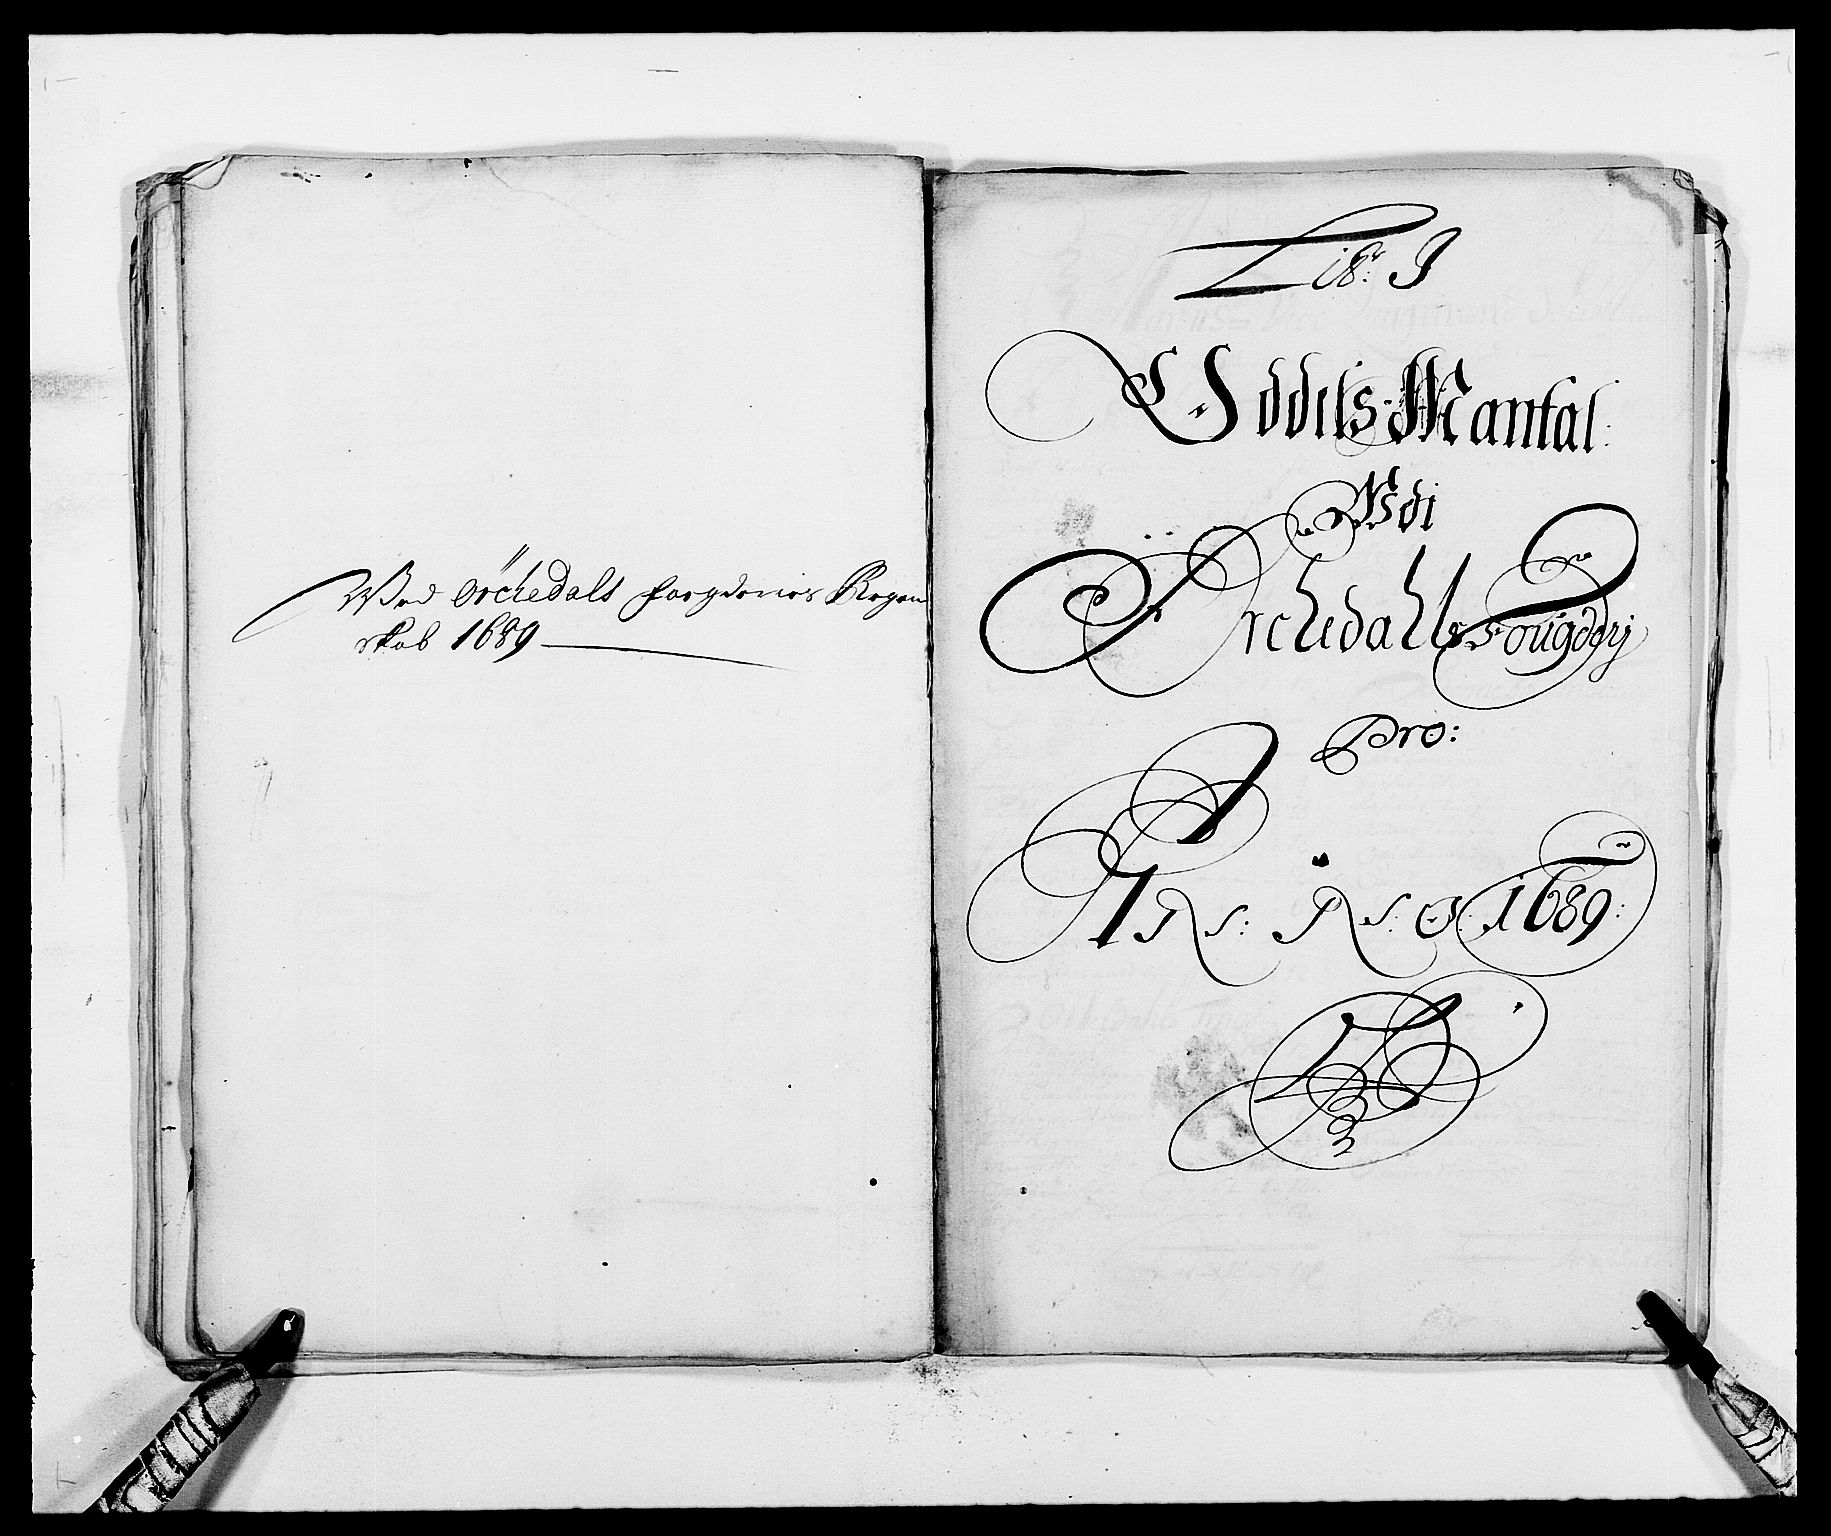 Ved Örchedals foegderies Regen
skab 1689
Lib: J
Oddels-Mantal:
Udi
Örchedahls Fougderj
Pro:
ANNO 1689: